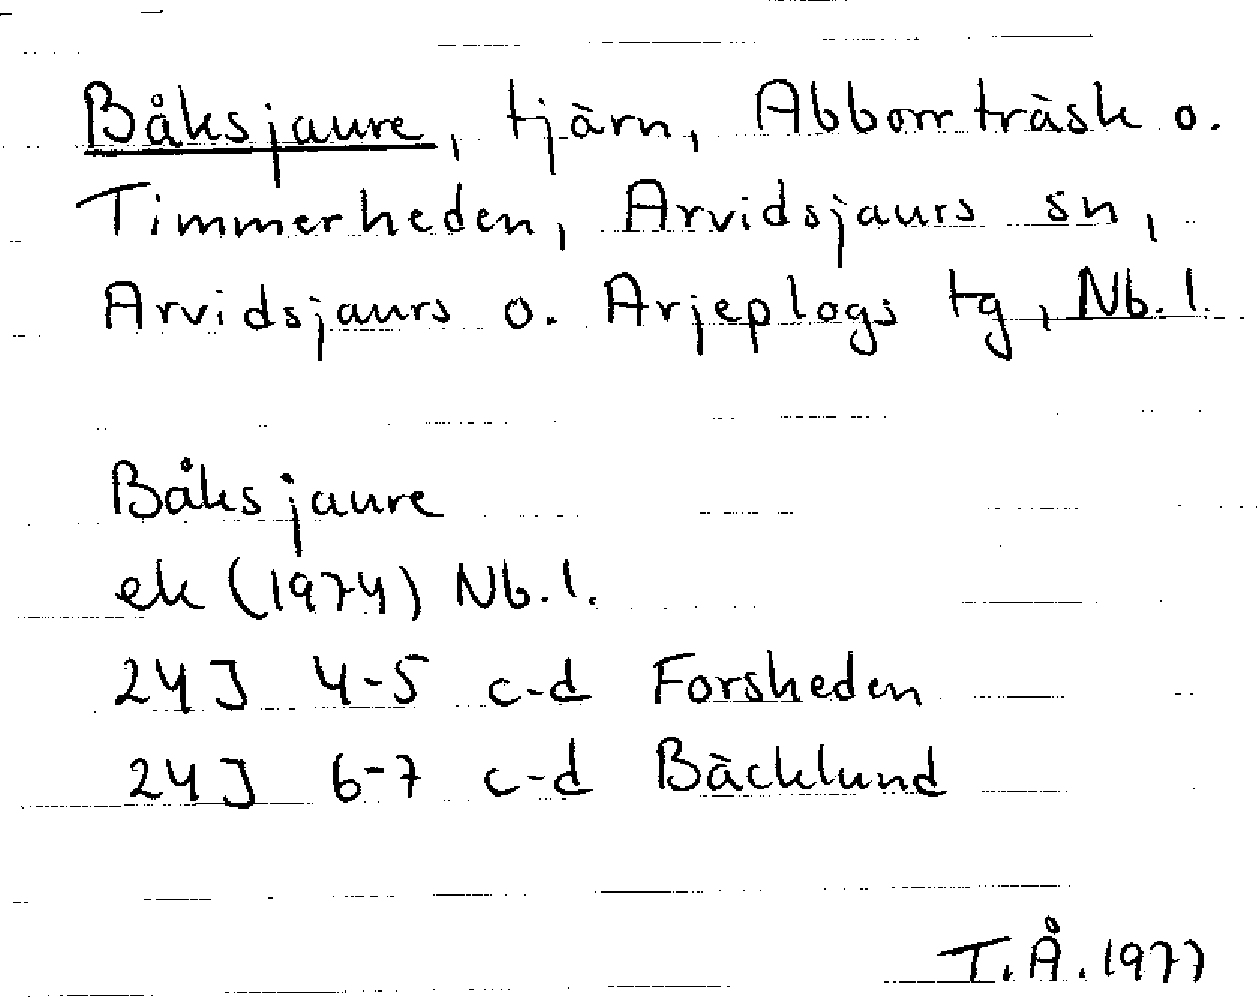 Båksjaure, tjärn, Abborrträsk o.
Timmerheden, Arvidsjaurs sn,
Arvidsjaurs o. Arjeplogs tg, Nb. l.
Båksjaure
ek (1974) Nb. l.
24J 4-5 c-d Forsheden
24J 6-7 c-d Bäcklund
T. Å. 1977